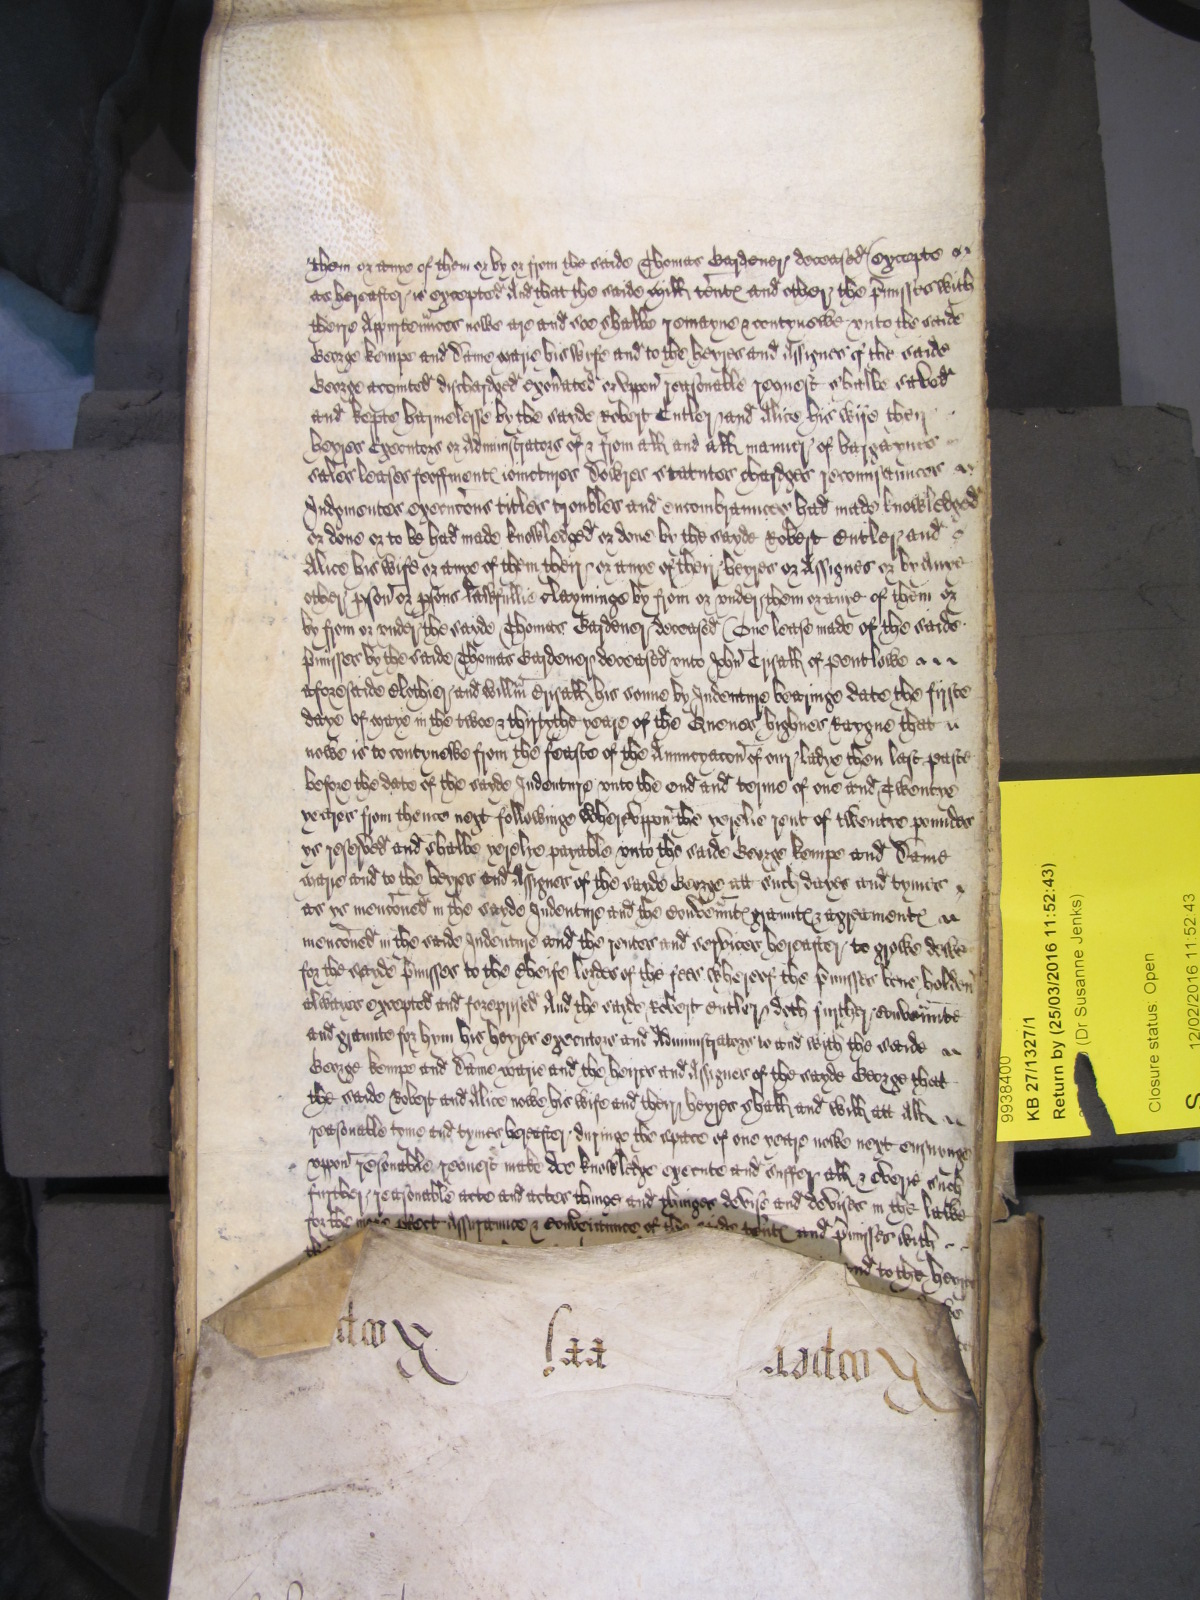 them or anye of them or by or from the saide Thomas Gardener deceased (excepte
as hereafter is excepted And that the saide mill tent and other the pmisses with
theire Appurtennces nowe are and soe shalbe remayne & contynewe vnto the saide
George Kempe and Dame marie his wife and to the heyres and Assignes of the saide
George acquited dischardged exonated or vppon reasonable request shalbe saved
and kepte harmelesse by the sayde Robert Cutler and Alice his wife their
heyres Executors or Administrators of & from all and all manner of bargaynes
sales leases feoffment ioinctures Dowers statutes chardges recognisaunces
Judgmentes execucons titles troubles and encombraunces had made knowledged
or done or to be had made knowledged or done by the sayde Robert Cutler and
Alice his wife or anye of them their or anye of their heyres or Assignes or by Anye
other pson or psons lawfullie clayminge by from or vnder them or anye of them or
by from or vnder the sayde Thomas Gardener deceased (One lease made of the saide
pmisses by the saide Thomas Gardener deceased vnto John Crisall of Pentlowe
aforesaide Clothier and Willm Crisall his sonne by Indenture bearinge date the firste
daye of maye in the twoe & thirtythe yeare of the Quenes highnes Raygne that
nowe is to contynewe from the feaste of the Annuncyacon of our ladye then last paste
before the date of the sayde Indenture vnto the end and terme of one and Twentye
yeares from thence next followinge Whervppon the yerelie rent of twentie poundes
ys reserved and shalbe yerelye payable vnto the saide George Kempe and Dame
marie and to the heyres and Assignes of the sayde George att such dayes and tymes
as ys menconed in the sayde Indenture and the Covennt graunt & agreament
menconed in the saide Indenture and the rentes and services hereafter to growe dewe
for the sayde pmisses to the Cheife lordes of the fees whereof the pmisses bene holden
alwayes excepted and foreprised And the sayde Robert Cutler doth further Covennte
and graunte for hym his heyres executors and Administrators to and with the saide
George Kempe and Dame marie and the heires and Assignes of the sayde George that
the saide Robert and Alice nowe his wife and their heyres shall and will att All
reasonable tyme and tymes hereafter duringe the space of one yeare nowe next ensuynge
vppon resonable request make doe knowledge execute and suffer all & everie such
further reasonable acte and actes thinge and thinges devise and devises in the lawe
for the more Assuraunce & conveiaunce of the tent and pmisses with
and to the heyres
9938400
KB 27/1327/1
Return by (25/03/2016 11:52:43)
(Dr Susanne Jenks)
Closure status: Open
12/02/2016 11:52:43